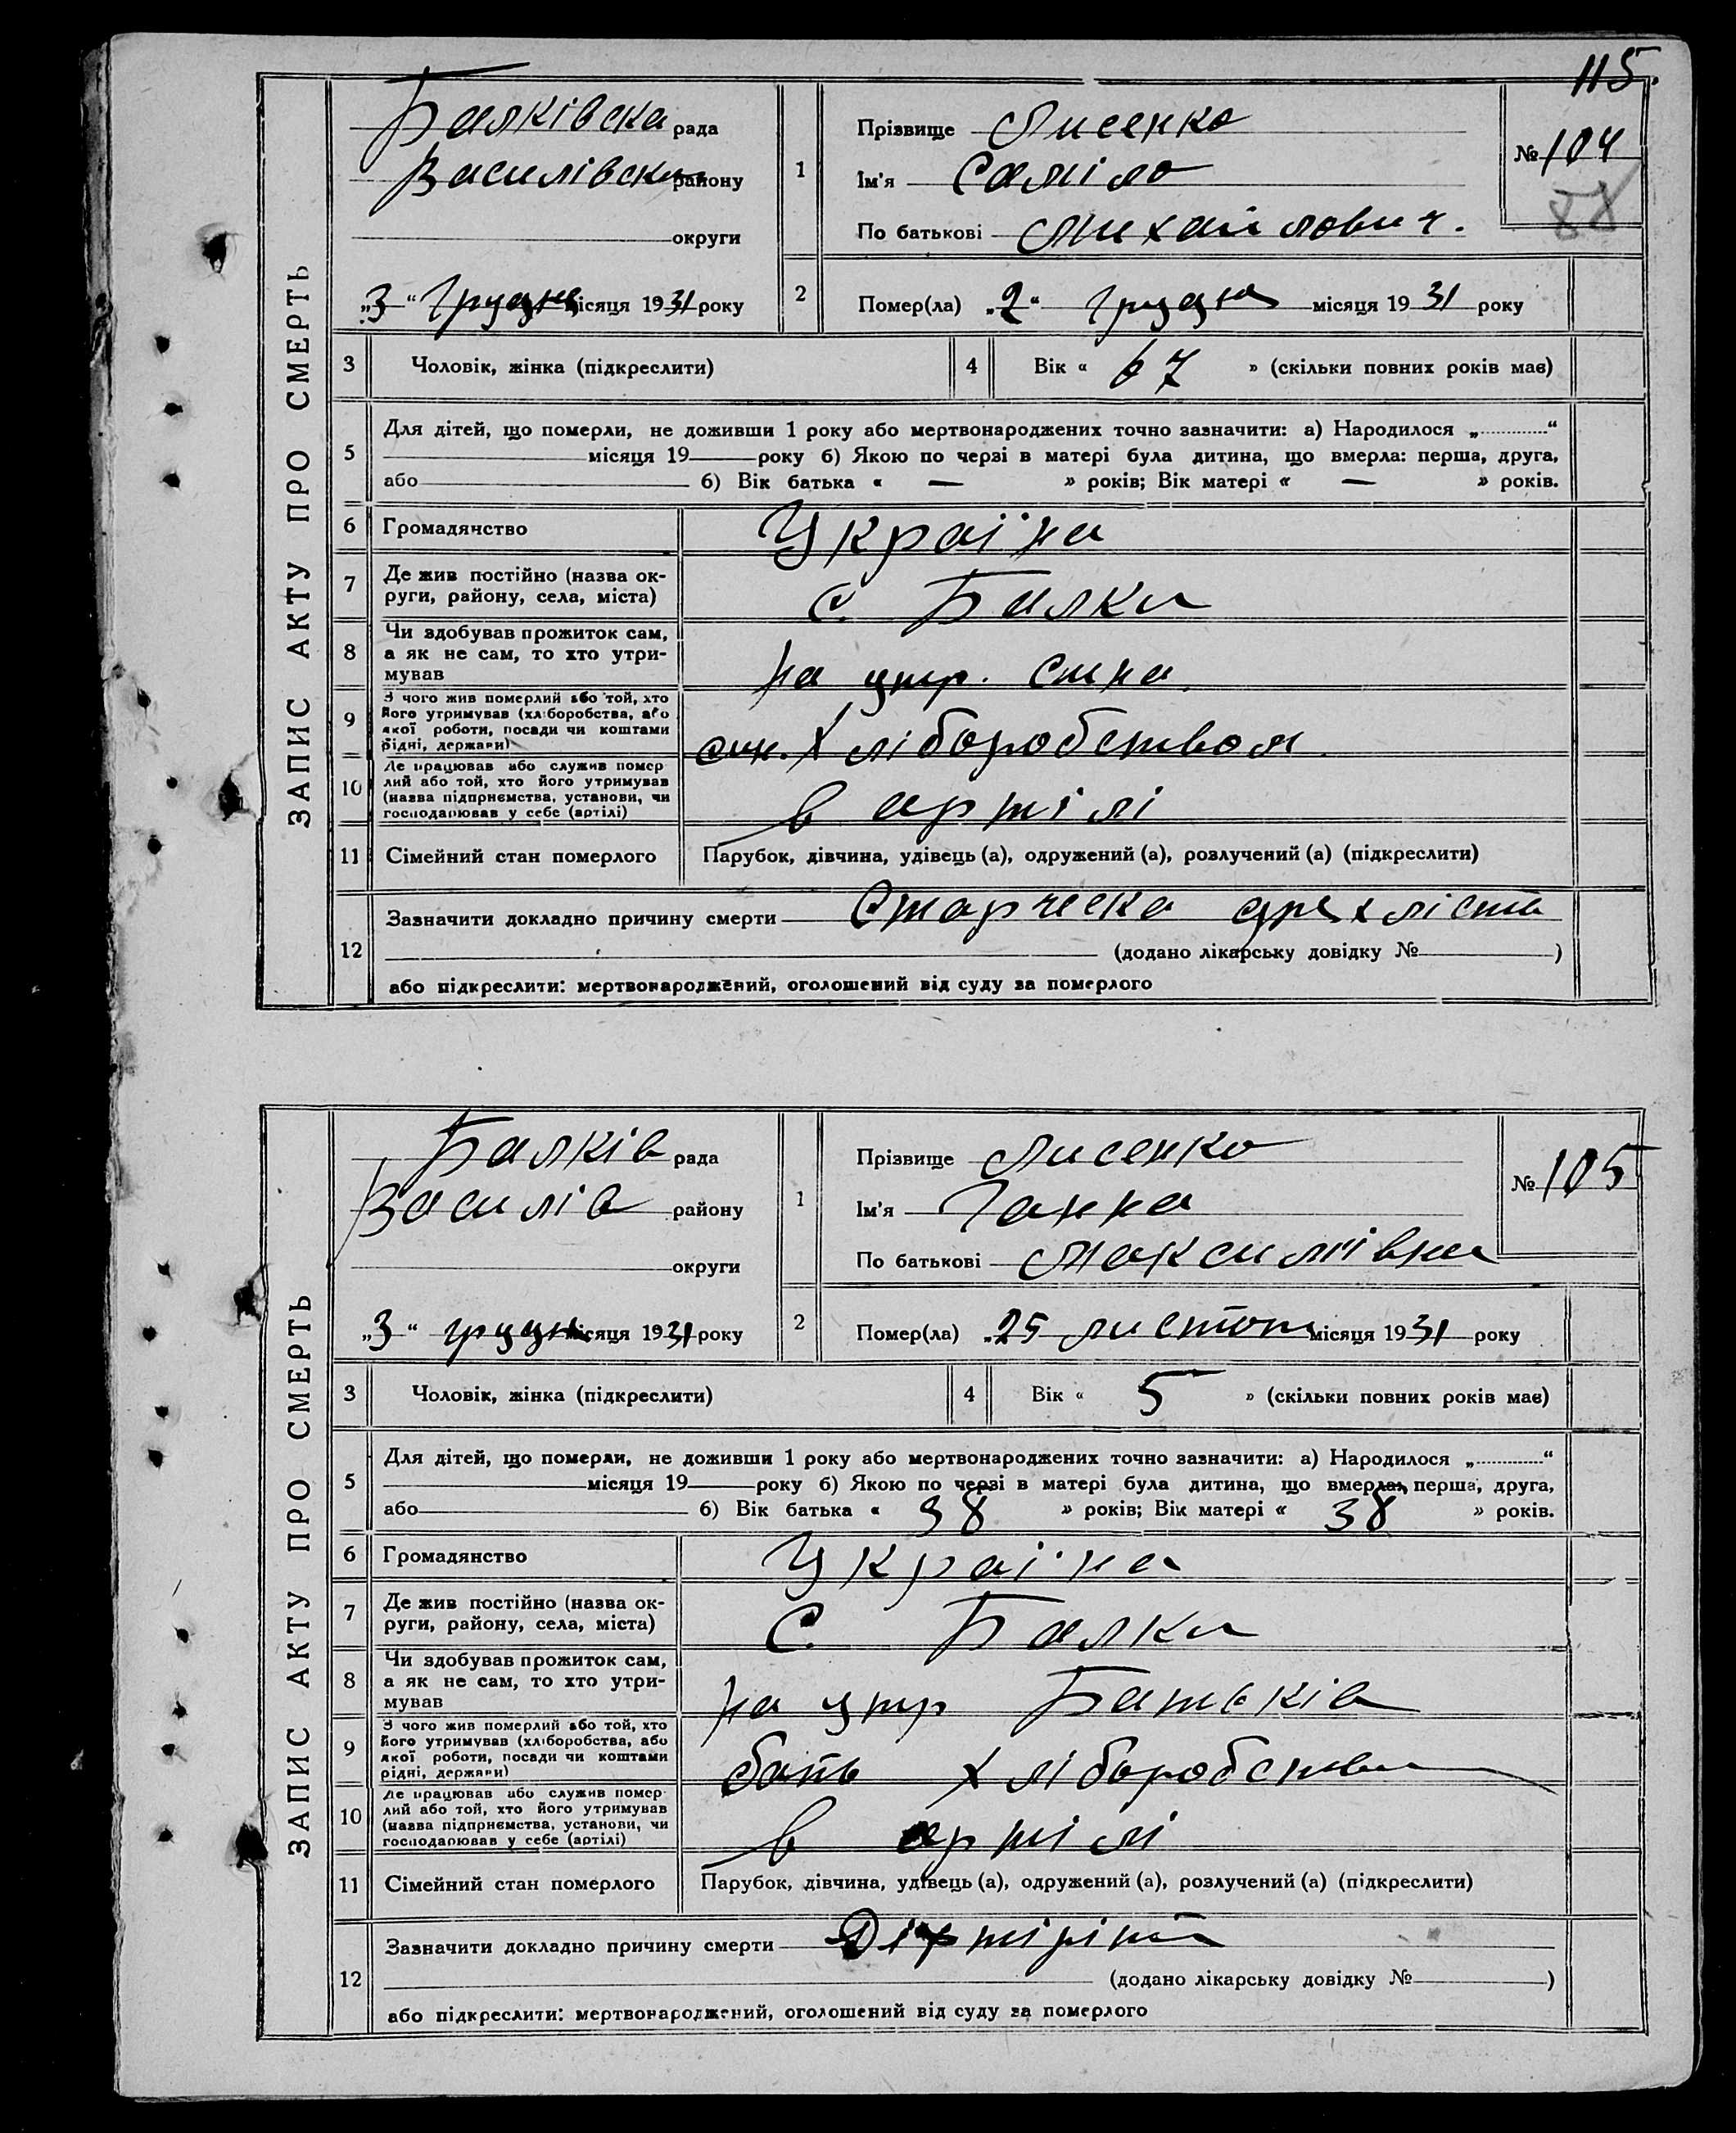 115.
ЗАПИС АКТУ ПРО СМЕРТЬ
Балківска рада
Василівски району
округи
„3“ Грудня місяця 1931 року
1
Прізвище Лисенко
Ім'я Саміло
По батькові Михайлович.
№ 104
88
2
Помер(ла) „2“ Грудня місяця 1931 року
3 Чоловік, жінка (підкреслити)
4 Вік « 67 » (скільки повних років має)
5
Для дітей, що померли, не доживши 1 року або мертвонароджених точно зазначити: а) Народилося „ “
місяця 19 року б) Якою по черзі в матері була дитина, що вмерла: перша, друга,
або б) Вік батька « — » років; Вік матері « — » років.
6 Громадянство Україна
7 Де жив постійно (назва ок-
руги, району, села, міста) с. Балки
8 Чи здобував прожиток сам,
а як не сам, то хто утри-
мував на утр. сина.
9 З чого жив померлий або той, хто
його утримував (хліборобства, або
якої роботи, посади чи коштами
рідні, держави) син. Хліборобством
10 Де працював або служив помер-
лий або той, хто його утримував
(назва підприємства, установи, чи
господарював у себе (артілі) в артілі
11 Сімейний стан померлого Парубок, дівчина, удівець (а), одружений (а), розлучений (а) (підкреслити)
12
Зазначити докладно причину смерти Старческа дрехлість
(додано лікарську довідку № )
або підкреслити: мертвонароджений, оголошений від суду за померлого
ЗАПИС АКТУ ПРО СМЕРТЬ
Балків рада
Василів району
округи
„3“ грудня місяця 1931 року
1
Прізвище Лисенко
Ім'я Ганна
По батькові Максимівна
№ 105
2
Помер(ла) „25 листоп місяця 1931 року
3 Чоловік, жінка (підкреслити)
4 Вік « 5 » (скільки повних років має)
5
Для дітей, що померли, не доживши 1 року або мертвонароджених точно зазначити: а) Народилося „ “
місяця 19 року б) Якою по черзі в матері була дитина, що вмерла: перша, друга,
або б) Вік батька « 38 » років; Вік матері « 38 » років.
6 Громадянство Україна
7 Де жив постійно (назва ок-
руги, району, села, міста) С. Балки
8 Чи здобував прожиток сам,
а як не сам, то хто утри-
мував на утр Батьків
9 З чого жив померлий або той, хто
його утримував (хліборобства, або
якої роботи, посади чи коштами
рідні, держави) бать хліборобством
10 Де працював або служив помер-
лий або той, хто його утримував
(назва підприємства, установи, чи
господарював у себе (артілі) в артілі
11 Сімейний стан померлого Парубок, дівчина, удівець (а), одружений (а), розлучений (а) (підкреслити)
12
Зазначити докладно причину смерти
(додано лікарську довідку № )
або підкреслити: мертвонароджений, оголошений від суду за померлого